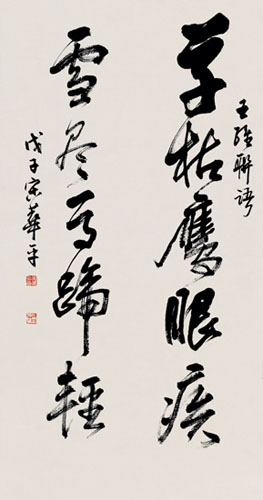 王維聯語
草枯鷹眼疾
雪盡馬蹄輕
戊子宋華平